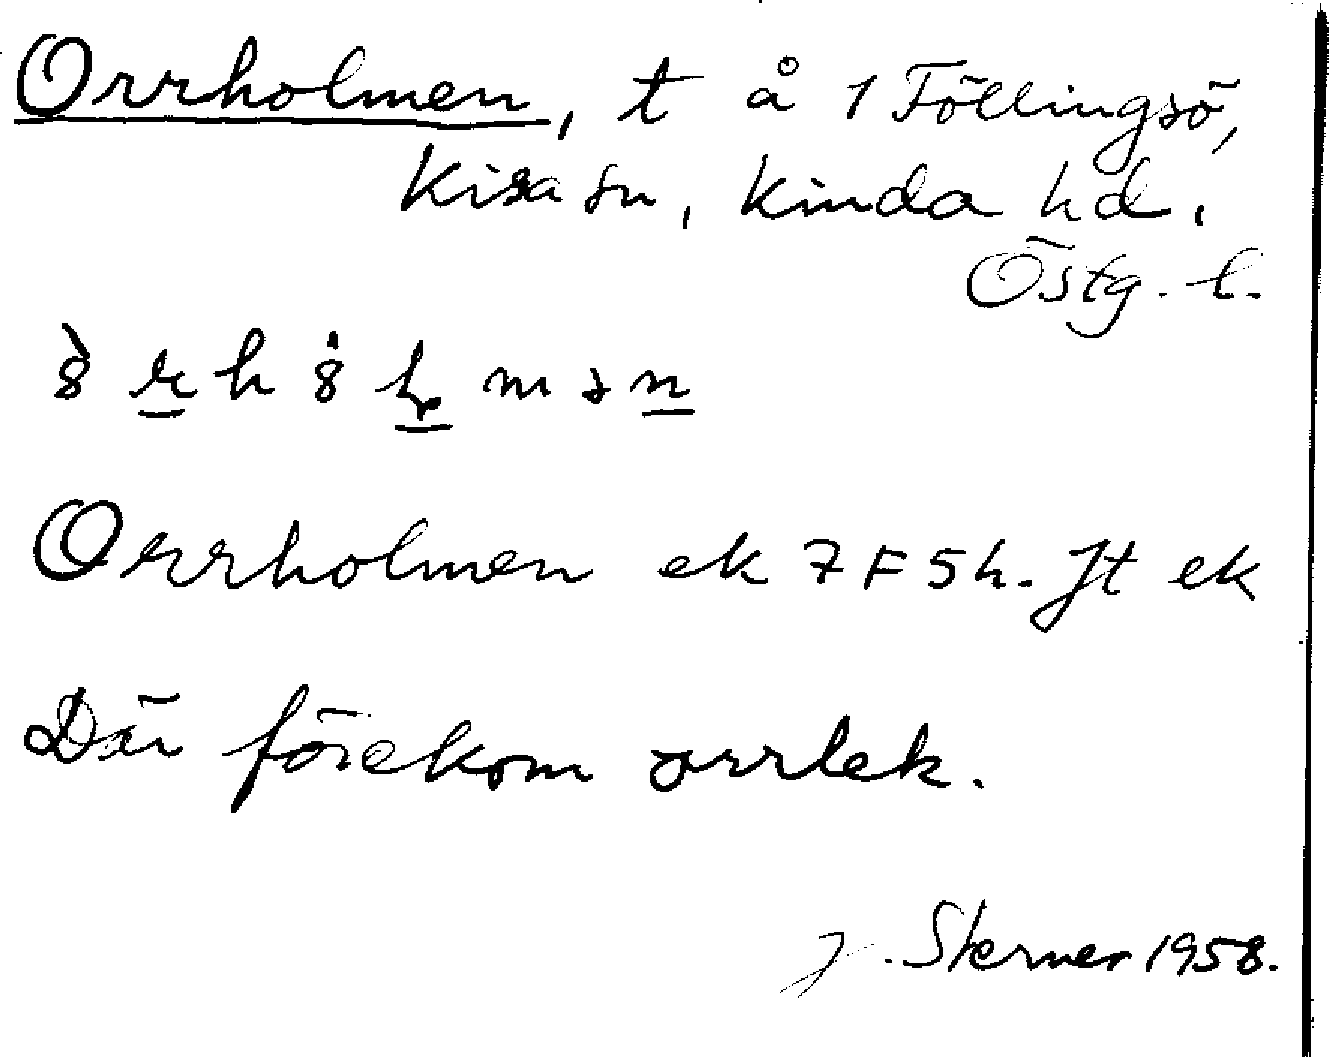 Orrholmen, t å 1 Föllingsö,
Kisa sn, Kinda hd.
Östg. l.
Orrholmen ek 7F5h. Jt ek
Där förekom orrlek.
J. Sterner 1958.